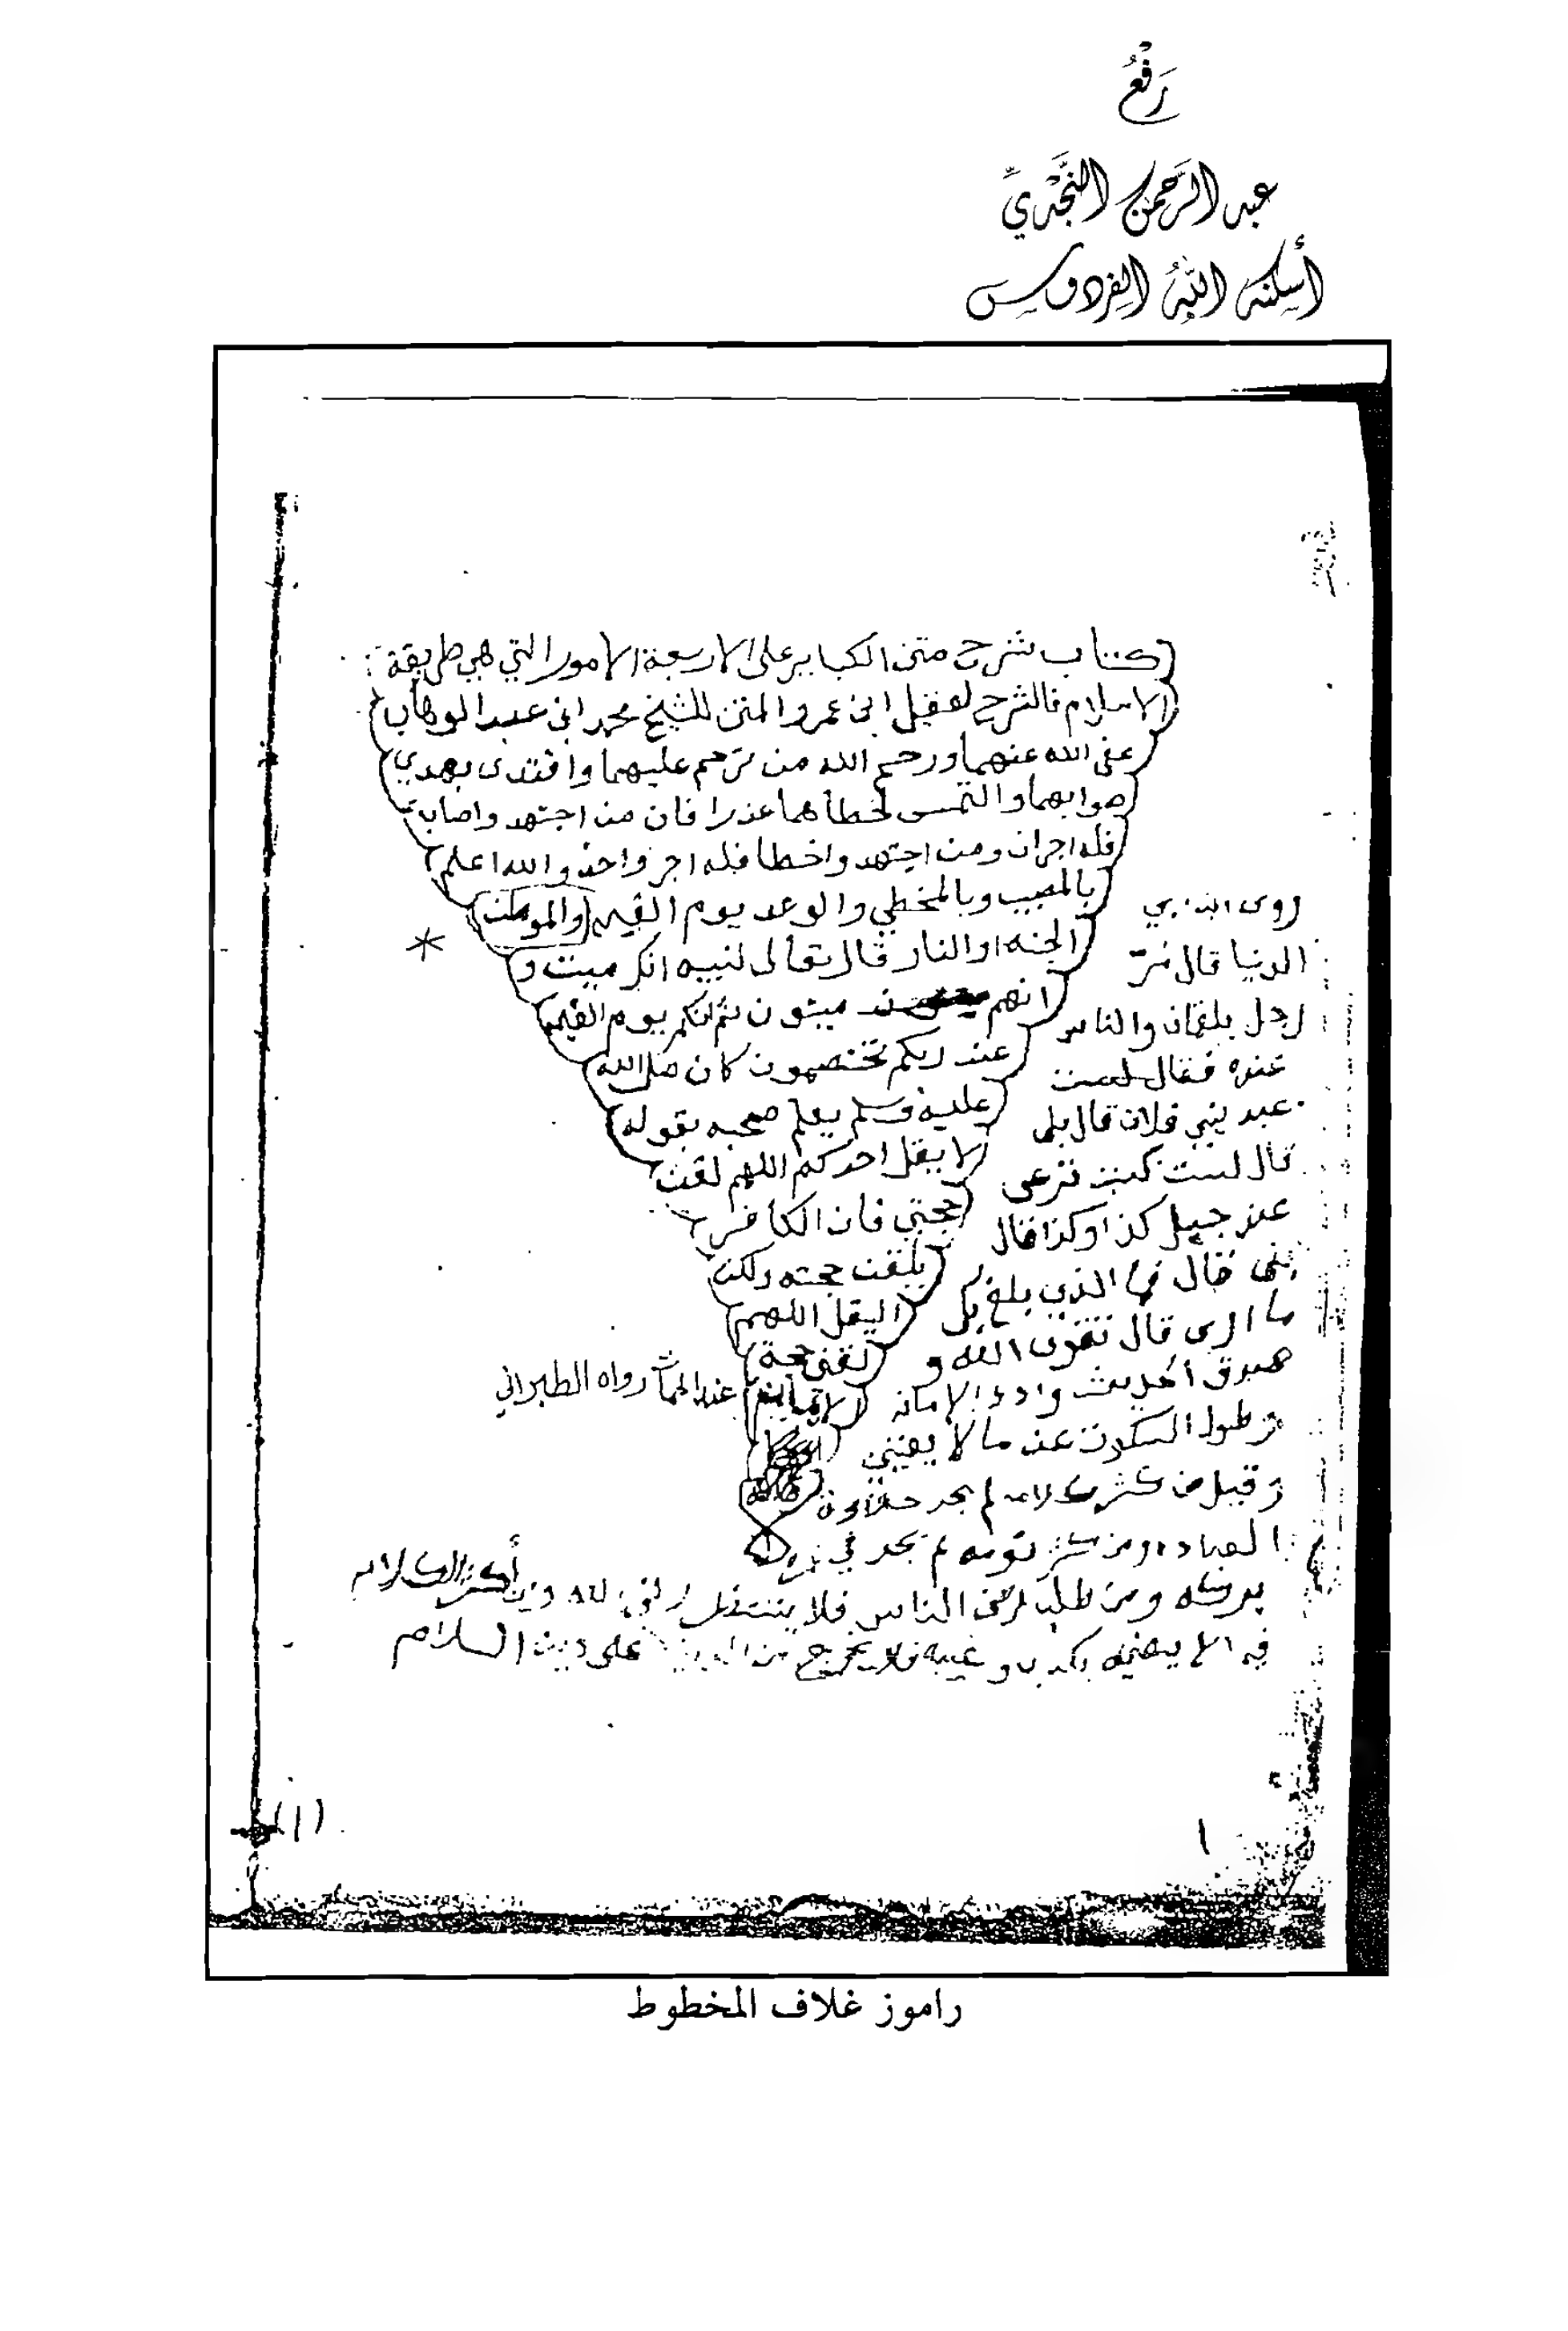 رَفْعُ
عبد الرَّحمن النَّجْديِّ
أسكنه اللهُ الفردوس
كتاب شرح متن الكباير على الاربعة الامور التي هي طريقة
الاسلام فالشرح لعقيل ابن عمر والمتن للشيخ محمد ابن عبد الوهاب
عفى الله عنهما ورحم الله من ترحم عليهما واقتدى بهدي
صوابهما والتمس لخطأهما عذرا فان من اجتهد واصاب
فله اجران ومن اجتهد واخطا فله اجر واحد والله اعلم
بالمصيب وبالمخطي والوعد يوم القيمه والموطن
الجنه او النار قال تعالى لنبيه انك ميت و
انهم ميتون ثم انكم يوم القيمه
عند ربكم تختصمون كان صلى الله
عليه وسلم يعلم صحبه بقوله
لا يقل احدكم اللهم لقني
حجتي فان الكافر
يلقن حجته ولكن
اليقل اللهم
لقني حجة
الايمان عند الممات رواه الطبراني
روى ابن ابي
الدنيا قال مرّ
رجل بلقمان والناس
عنده فقال لست
عبد بني فلان قال بلى
قال لست كنت ترعى
عند جبل كذا وكذا فقال
بلى فقال فما الذي بلغ بك
ما ارى قال تقوى الله و
صدق الحديث واداء الامانه
وطول السكوت عن ما لا يعنيني
وقيل من كثر كلامه لم يجد حلاوة
العباده ومن كثر نومه لم يجد في
بركه ومن طلب رضى الناس فلا ينتظر رضى الله ومن أكثر الكلام
فيما لا يعنيه بكذب وغيبه فلا يخرج من الدنيا على دين السلام
(١)
١
راموز غلاف المخطوط